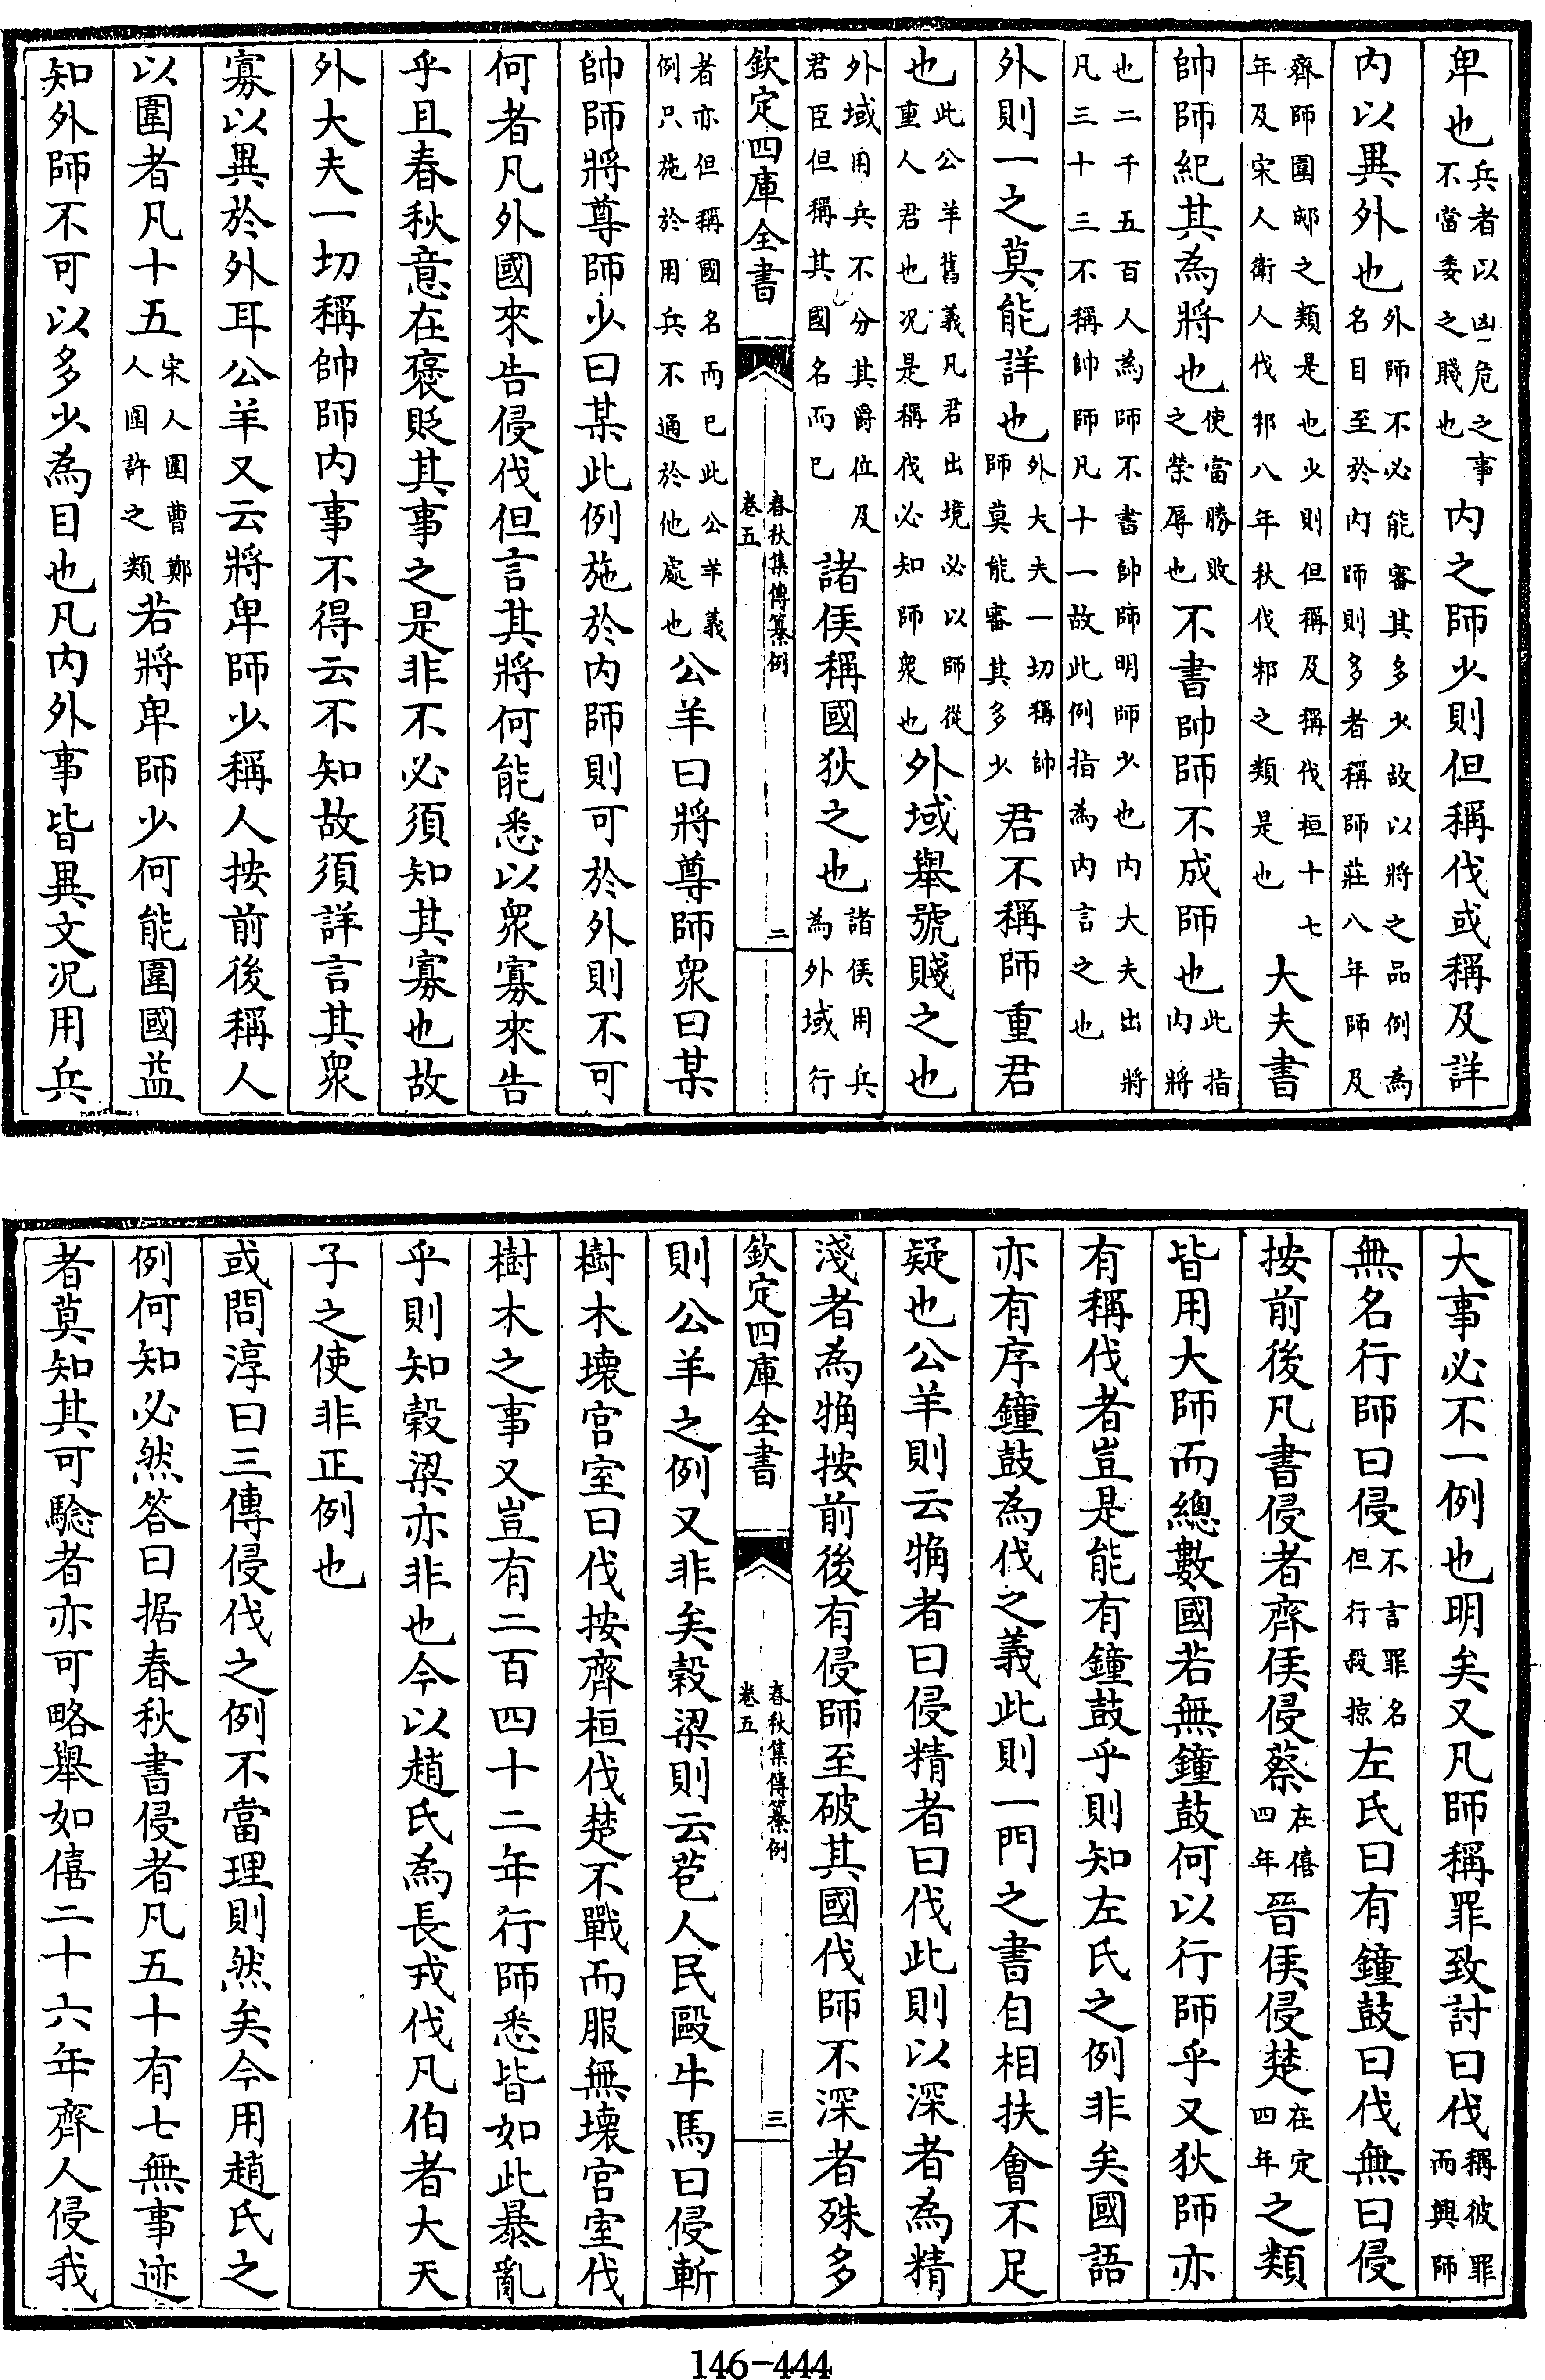 卑也兵者以凶危之事不當委之賤也内之師少則但稱伐或稱及詳
内以異外也外師不必能審其多少故以將之品例為名目至於内師則多者稱師莊八年師及
齊師圍郕之類是也少則但稱及稱伐桓十七年及宋人衛人伐邾八年秋伐邾之類是也大夫書
帥師紀其為將也使當勝敗之榮辱也不書帥師不成師也此指内將
也二千五百人為師不書帥師明師少也内大夫出將凡三十三不稱帥師凡十一故此例指為内言之也
外則一之莫能詳也外大夫一切稱帥師莫能審其多少君不稱師重君
也此公羊舊義凡君出境必以師從重人君也况是稱伐必知師衆也外域舉號賤之也
外域用兵不分其爵位及君臣但稱其國名而已諸侯稱國狄之也諸侯用兵為外域行
欽定四庫全書 春秋集傳纂例 卷五 二
者亦但稱國名而已此公羊義例只施於用兵不通於他處也公羊曰將尊師衆曰某
帥師將尊師少曰某此例施於内師則可於外則不可
何者凡外國來告侵伐但言其將何能悉以衆寡來告
乎且春秋意在褒貶其事之是非不必須知其寡也故
外大夫一切稱帥師内事不得云不知故須詳言其衆
寡以異於外耳公羊又云將卑師少稱人按前後稱人
以圍者凡十五宋人圍曹鄭人圍許之類若將卑師少何能圍國益
知外師不可以多少為目也凡内外事皆異文况用兵
大事必不一例也明矣又凡師稱罪致討曰伐稱彼罪而興師
無名行師曰侵不言罪名但行殺掠左氏曰有鐘鼓曰伐無曰侵
按前後凡書侵者齊侯侵蔡在僖四年晉侯侵楚在定四年之類
皆用大師而總數國若無鐘鼓何以行師乎又狄師亦
有稱伐者豈是能有鐘鼓乎則知左氏之例非矣國語
亦有序鐘鼓為伐之義此則一門之書自相扶會不足
疑也公羊則云觕者曰侵精者曰伐此則以深者為精
淺者為觕按前後有侵師至破其國伐師不深者殊多
欽定四庫全書 春秋集傳纂例 卷五 三
則公羊之例又非矣榖梁則云苞人民毆牛馬曰侵斬
樹木壞宫室曰伐按齊桓伐楚不戰而服無壞宫室伐
樹木之事又豈有二百四十二年行師悉皆如此暴亂
乎則知榖梁亦非也今以趙氏為長戎伐凡伯者大天
子之使非正例也
或問淳曰三傳侵伐之例不當理則然矣今用趙氏之
例何知必然答曰据春秋書侵者凡五十有七無事迹
者莫知其可驗者亦可略舉如僖二十六年齊人侵我
146-444